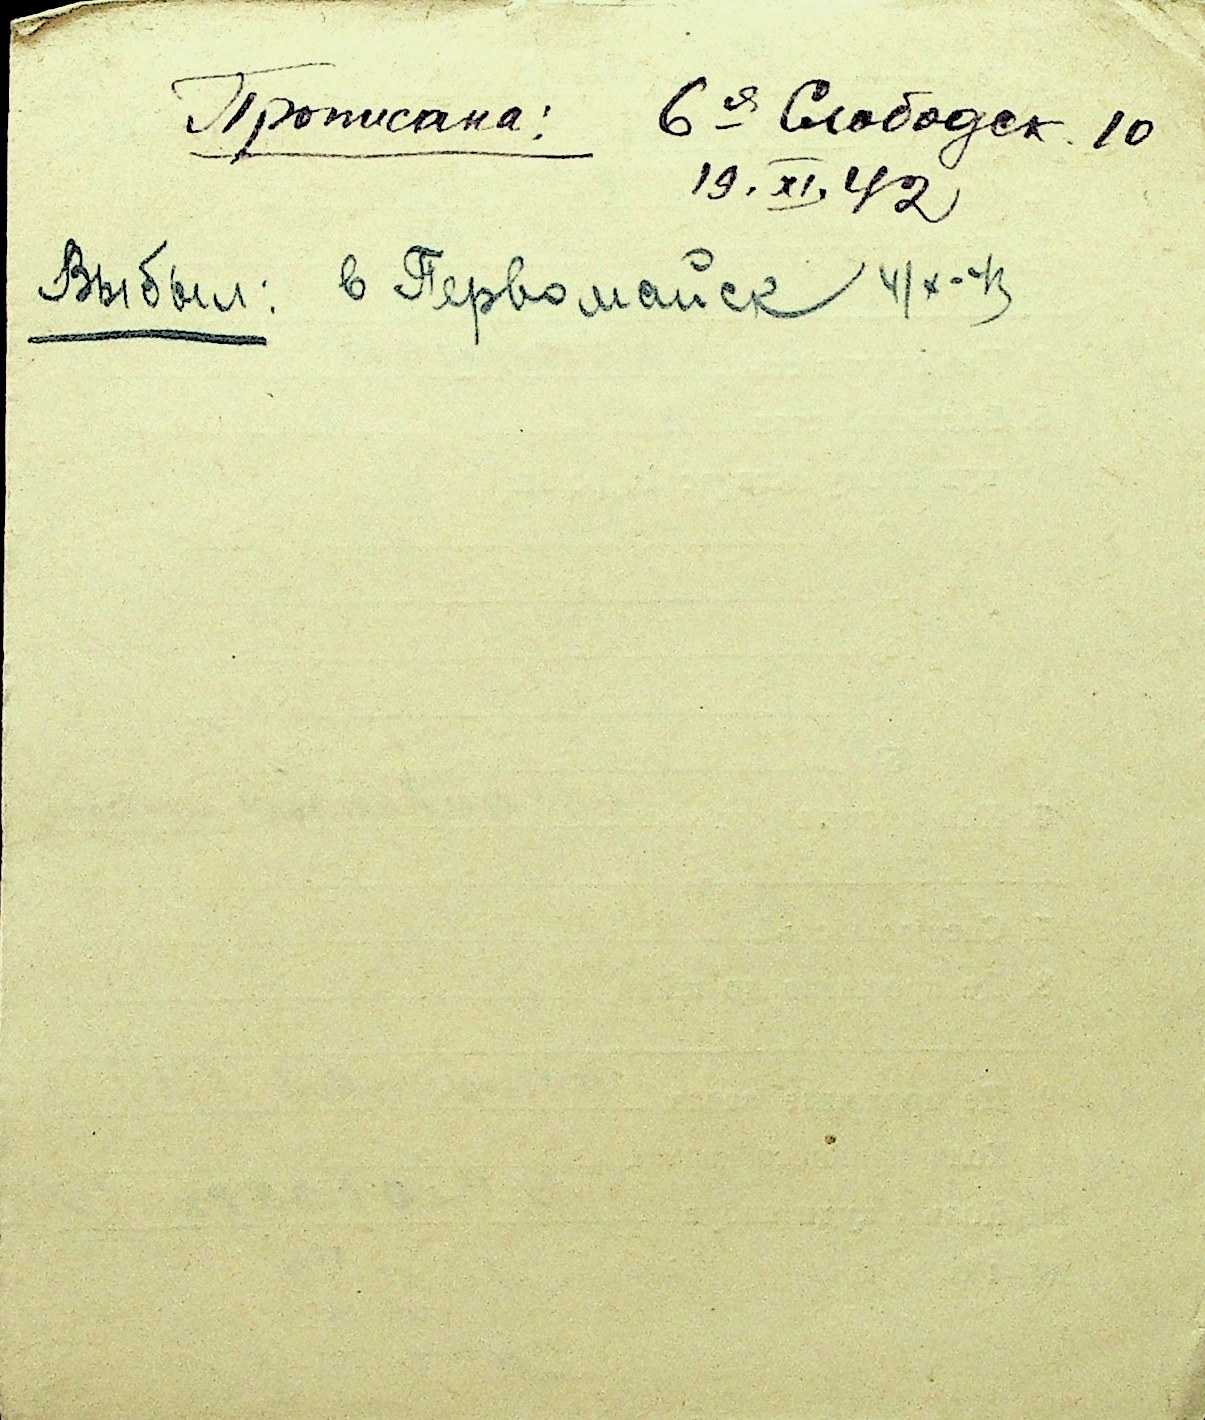 Прописана: 6я Слободск. 10
19. XI. 42
Выбыл: в Первомайск 4/X-43